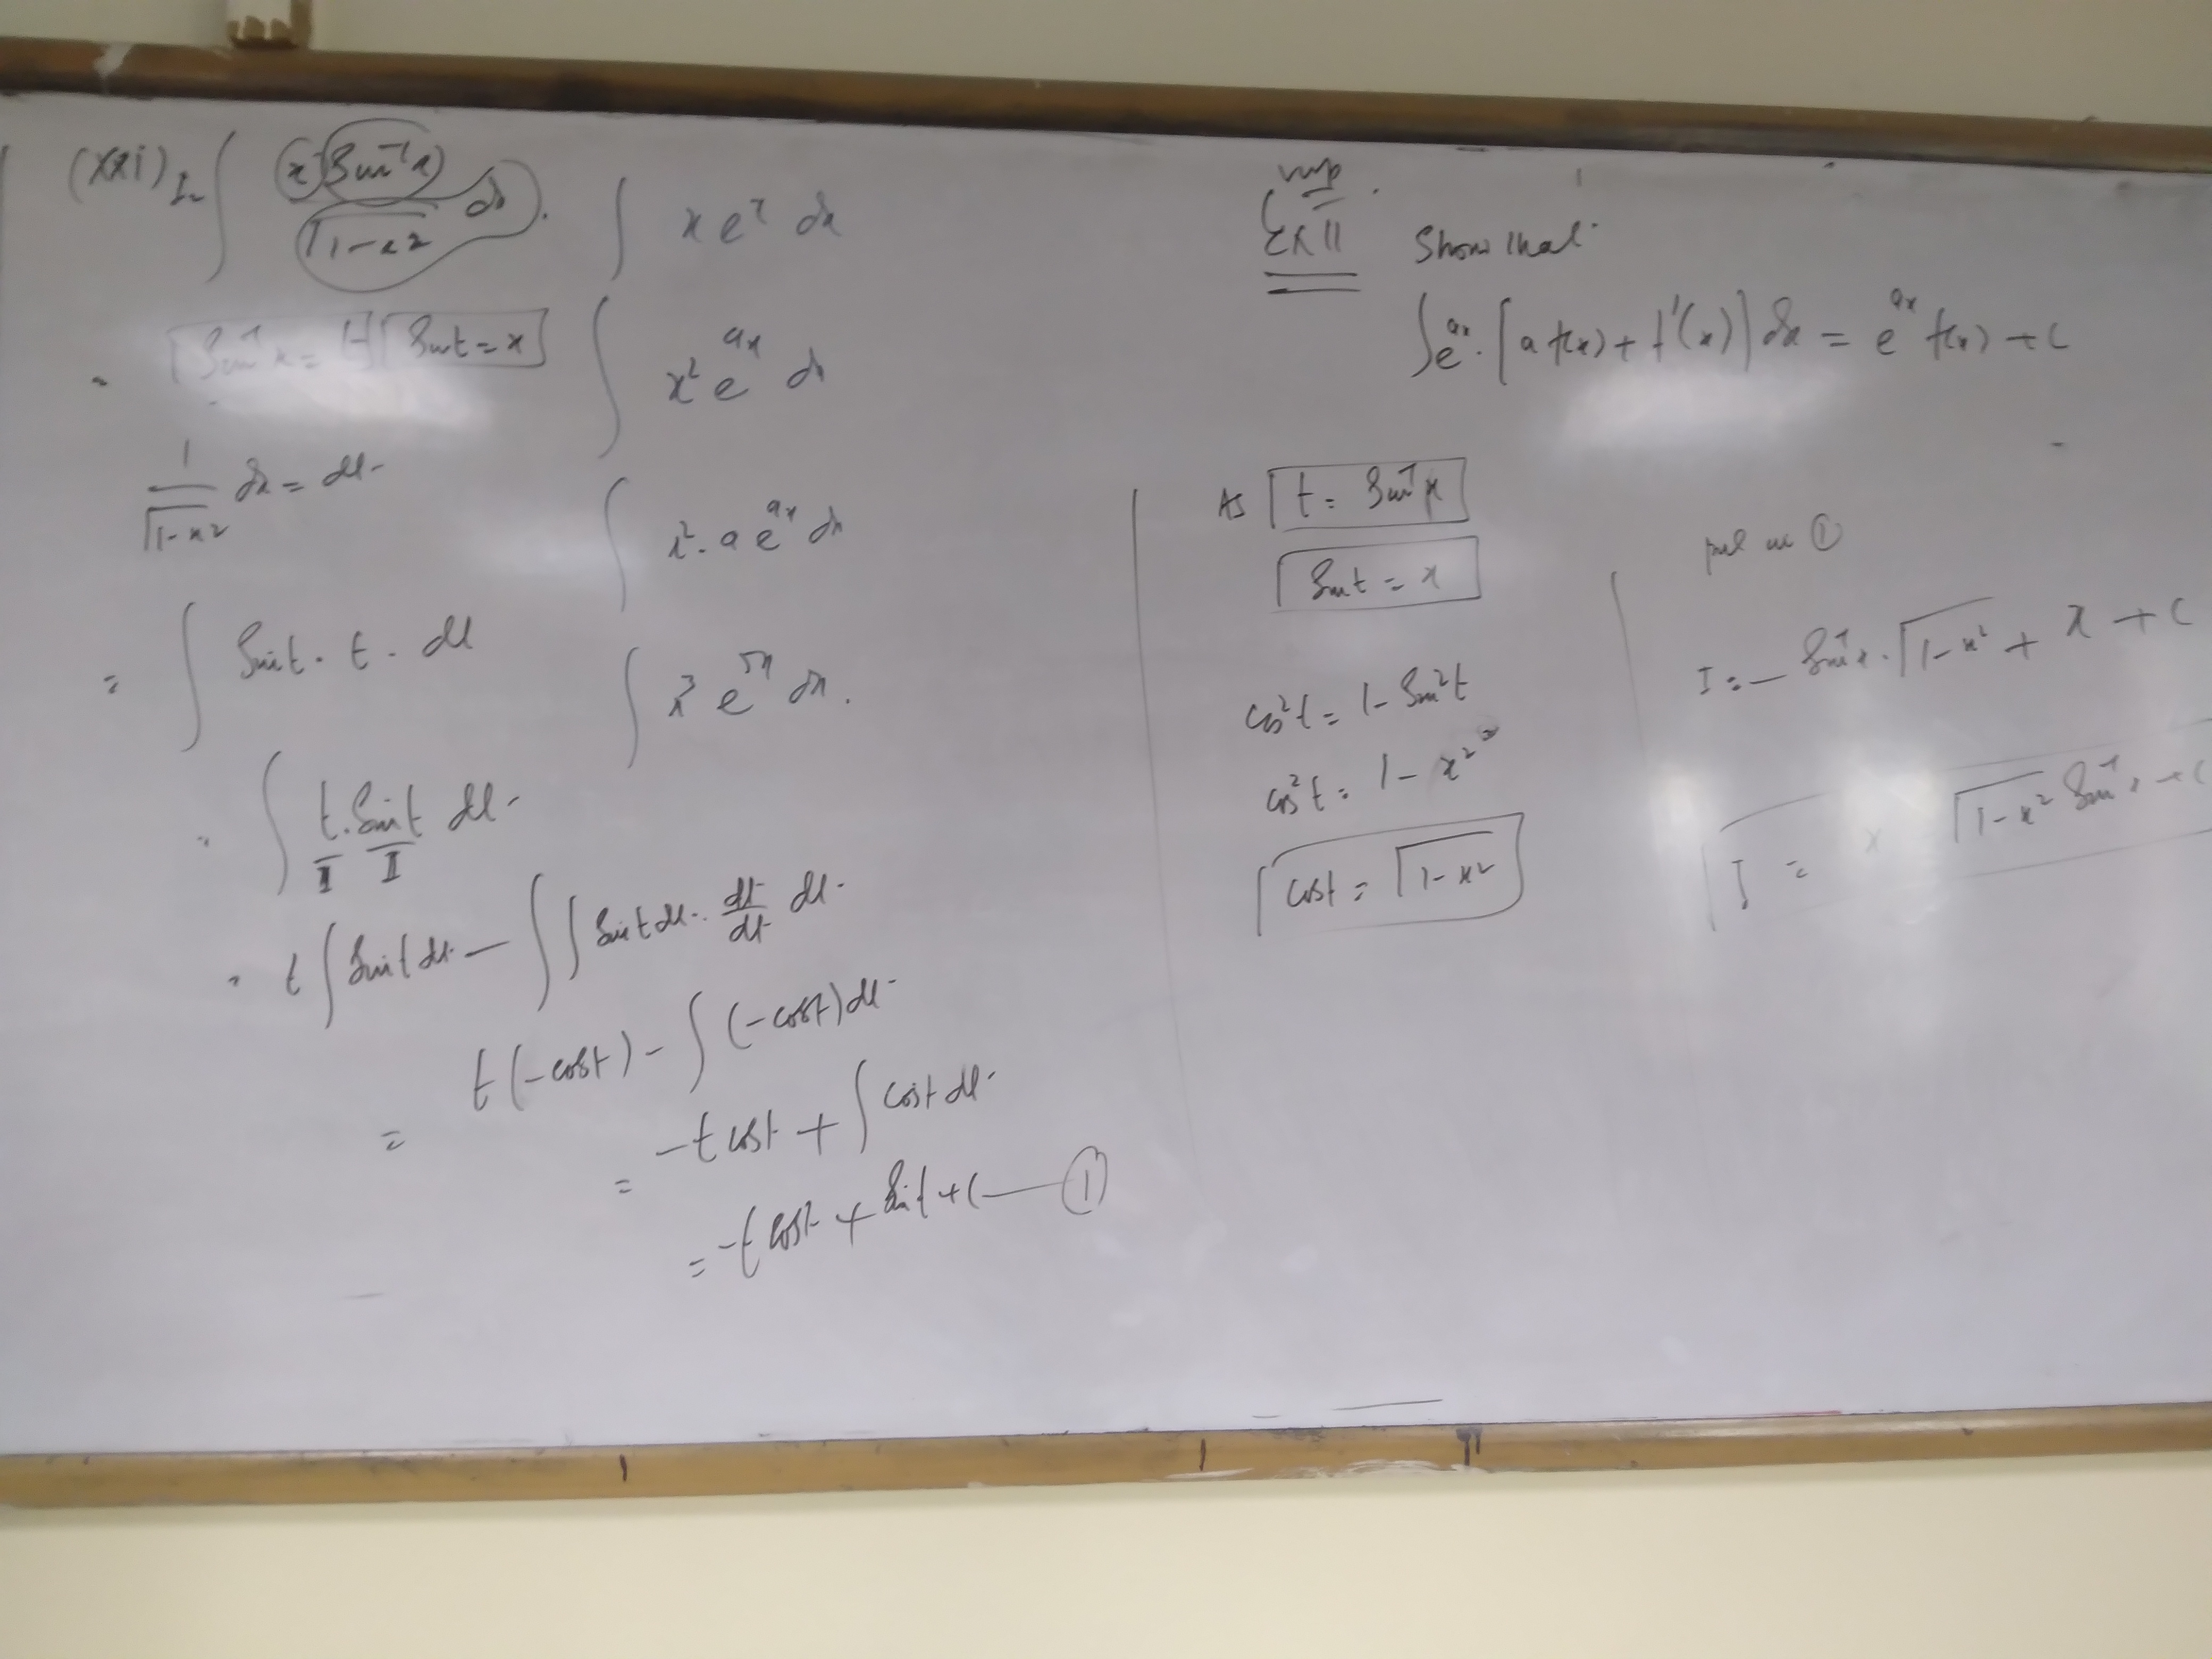 (xxi) I = ∫ x Sin⁻¹x / √1-x² dx.
Sin⁻¹x = t Sint = x
1/√1-x² dx = dt
= ∫ Sint . t . dt
= ∫ t . Sint dt
I II
= t ∫ Sint dt - ∫ ∫ Sint dt . dt/dt dt
= t(-cost) - ∫ (-cost) dt
= -t cost + ∫ cost dt
= -t cost + Sint + C — ①
∫ x eˣ dx
∫ x² e^ax dx
∫ x² . a e^ax dx
∫ x³ e^5x dx.
vvip
Ex 11 Show that
∫ e^ax . [a f(x) + f'(x)] dx = e^ax f(x) + C
As t = Sin⁻¹x
Sint = x
cos²t = 1 - Sin²t
cos²t = 1 - x²
cost = √1-x²
put in ①
I = - Sin⁻¹x . √1-x² + x + C
I = x √1-x² Sin⁻¹x + C